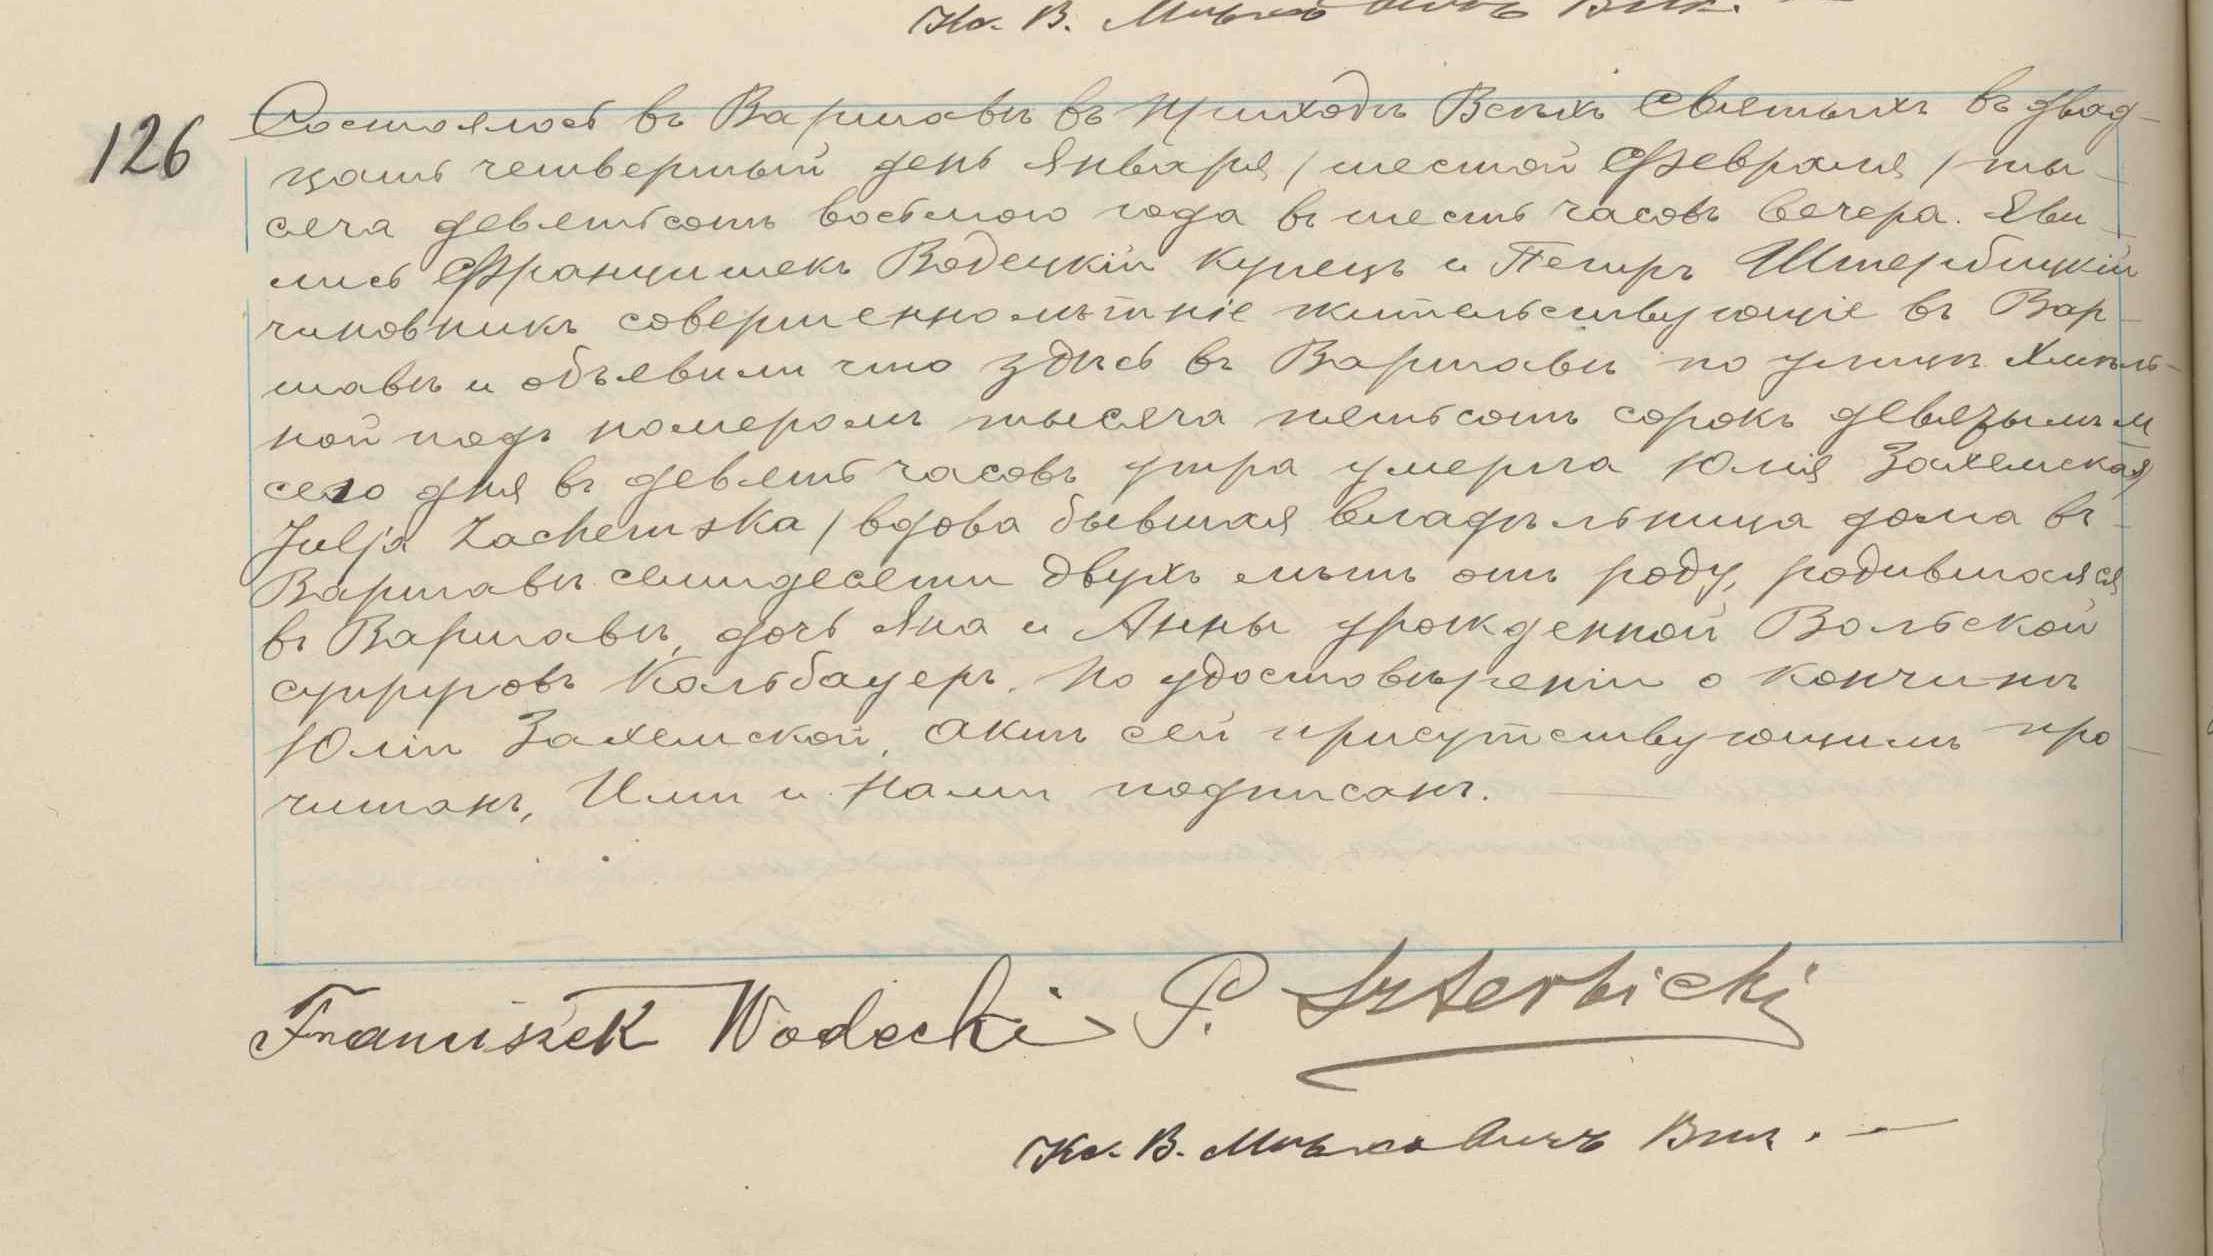 Кс. В.
126
Состоялось въ Варшавѣ въ приходѣ Всѣхъ Святыхъ въ двад-
цать четвертый день Января / шестой Февраля / ты-
сяча девятьсотъ восьмого года въ шесть часовъ вечера. Яви-
лись Францишекъ Водецкій купецъ и Петръ Штербицкій
чиновникъ совершеннолѣтніе жительствующіе въ Вар-
шавѣ и объявили что здѣсь въ Варшавѣ по улицѣ Хмѣль-
ной подъ номеромъ тысяча пятьсотъ сорокъ девятымъ
сего дня въ девять часовъ утра умерла Юлія Захемская /
Julja Zachemska / вдова бывшая владѣльница дома въ
Варшавѣ семидесяти двухъ лѣтъ отъ роду, родившаяся
въ Варшавѣ, дочь Яна и Анны урожденной Вольской
супруговъ Кольбауеръ. По удостовѣреніи о кончинѣ
Юліи Захемской, актъ сей присутствующимъ про-
читанъ, Ими и Нами подписанъ.
Franciszek Wodecki P. Szterbicki
Кс. В. Вик.